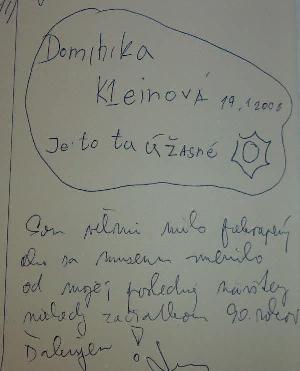 Dominika
Kleinová 19.1.2008
Je to tu ÚŽASNÉ
Som veľmi milo prekvapený
ako sa museum menilo
od mojej poslednej návštevy
niekedy začiatkom 90. rokov
Ďakujem!